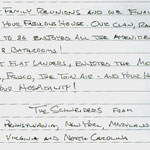 FAMILY REUNIONS AND WE FINAL
YOUR FABULOUS HOUSE. OUR CLAN, RAN
TO 86 ENJOYED ALL THE AMENITIE
BATHROOMS!
FLAT LANDERS, ENJOYED THE MO
, THE TOWN AIR - AND YOUR H
HOSPITALITY!
THE SCHNEIDERS FROM
PENNSYLVANIA, NEW YORK, MARYLAND
VIRGINIA AND NORTH CAROLINA